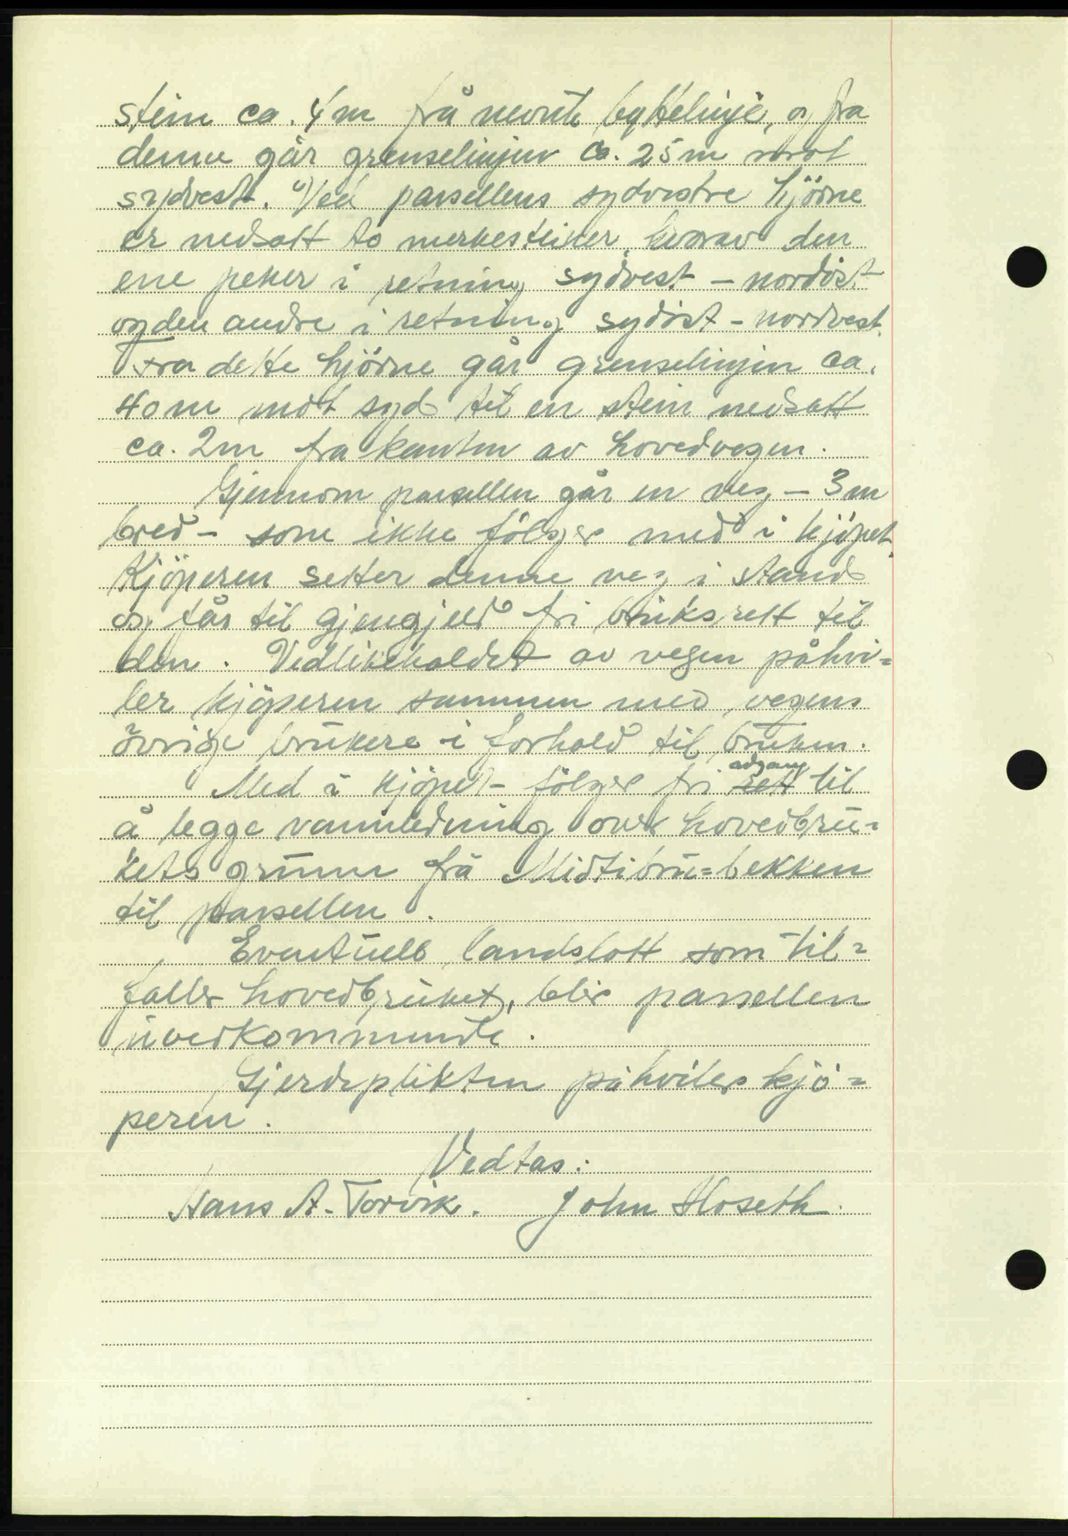 stein ca. 4 m frå nevnte byttelinje, og fra
denne går grenselinjen ca. 25 m mot
sydvest. Ved parsellens sydvestre hjörne
er nedsatt to merkesteiner, hvorav den
ene peker i retning sydvest - nordöst
og den andre i retning sydöst - nordvest.
Fra dette hjörne går grenselinjen ca.
40 m mot syd til en stein nedsatt
ca. 2 m fra kanten av hovedvegen.
Gjennom parsellen går en veg - 3 m
bred - som ikke fölger med i kjöpet.
Kjöperen setter denne veg i stand
og får til gjengjeld fri bruksrett til
den. Vedlikeholdet av vegen påhvi=
ler kjöperen sammen med vegens
övrige brukere i forhold til bruken.
Med i kjöpet fölger fri adgang til
å legge vannledning over hovedbru=
kets grunn frå Midtibru=bekken
til parsellen.
Eventuell landslott som til=
faller hovedbruket, blir parsellen
uvedkommende.
Gjerdeplikten påhviler kjö=
peren.
Vedtas:
Hans A. Torvik. John Hoseth.